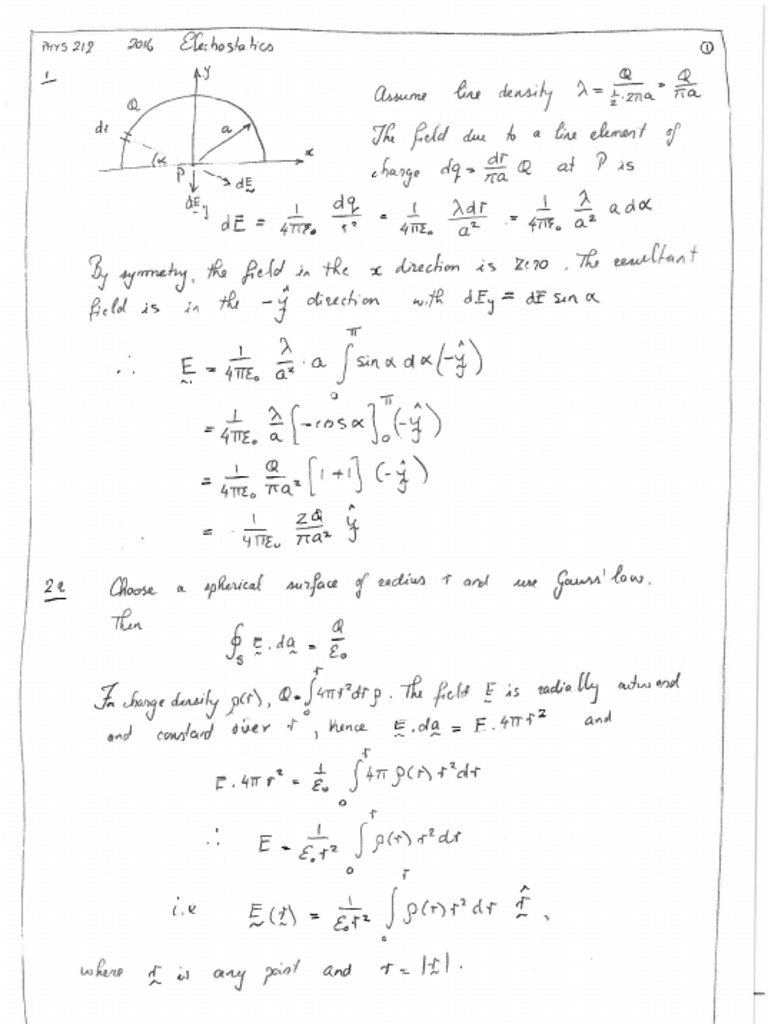 PHYS 212 2016 Electrostatics ①
1
y
Q
Assume line density λ = Q / (½·2πa) = Q / πa
dr
a
The field due to a line element of
α
x
P
charge dq = dr/πa Q at P is
dE
dE_y
dE = 1/4πε₀ dq/r² = 1/4πε₀ λdr/a² = 1/4πε₀ λ/a² a dα
By symmetry, the field in the x direction is zero. The resultant
field is in the -ŷ direction with dEy = dE sin α
∴ E = 1/4πε₀ λ/a² · a ∫₀^π sin α dα (-ŷ)
= 1/4πε₀ λ/a [-cos α]₀^π (-ŷ)
= 1/4πε₀ Q/πa² [1+1] (-ŷ)
= - 1/4πε₀ 2Q/πa² ŷ
2a Choose a spherical surface of radius r and use Gauss' law.
Then
∮_S E . da = Q/ε₀
For charge density ρ(r), Q = ∫₀^r 4πr²dr ρ. The field E is radially outward
and constant over r, hence E . da = E . 4πr² and
E . 4πr² = 1/ε₀ ∫₀^r 4π ρ(r) r² dr
∴ E = 1/ε₀r² ∫₀^r ρ(r) r² dr
i.e E(r) = 1/ε₀r² ∫₀^r ρ(r) r² dr r̂,
where r is any point and r = |r|.